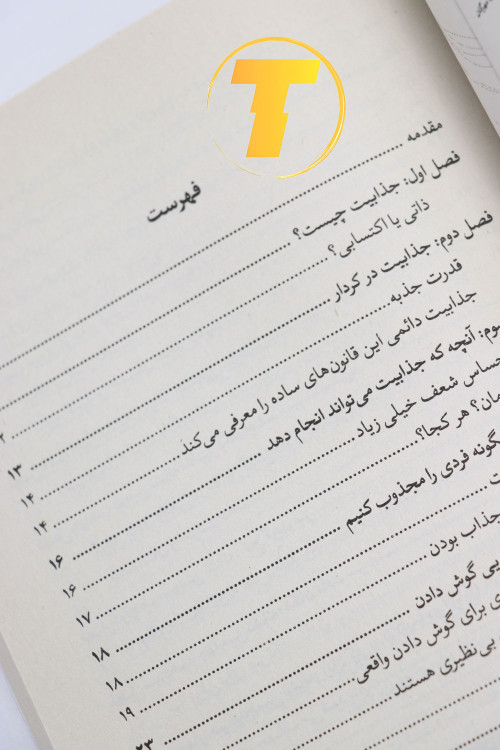 فهرست
مقدمه
فصل اول: جذابیت چیست؟
ذاتی یا اکتسابی؟
فصل دوم: جذابیت در کردار
قدرت جذبه
جذابیت دائمی این قانون‌های ساده را معرفی می‌کند
آنچه که جذابیت می‌تواند انجام دهد ۱۳
شعف خیلی زیاد ۱۴
هر کجا؟ ۱۴
فردی را مجذوب کنیم ۱۶
۱۶
جذاب بودن ۱۷
گوش دادن ۱۸
برای گوش دادن واقعی ۱۸
بی‌نظیری هستند ۱۹
۲۳